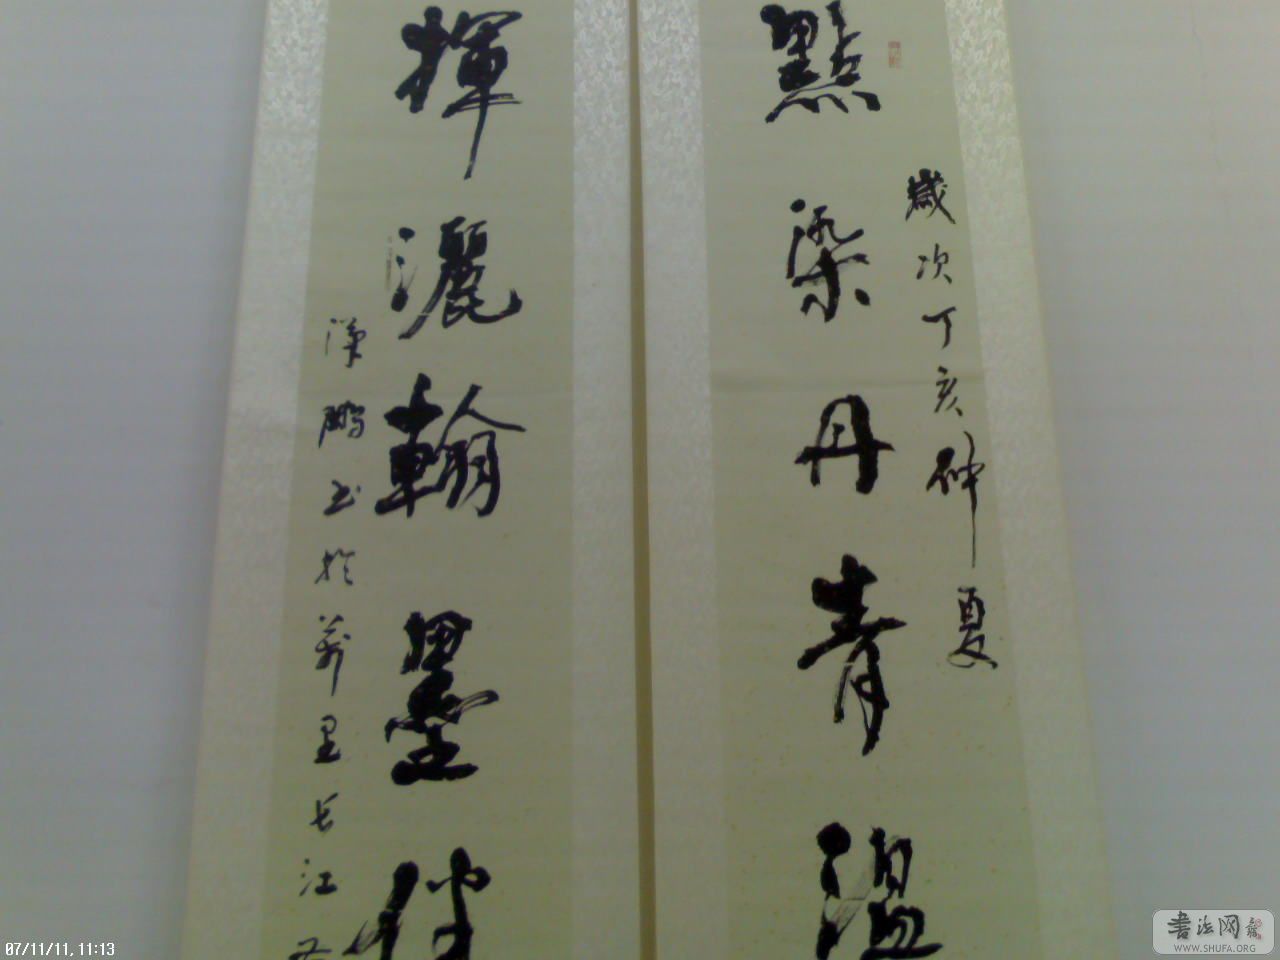 歲次丁亥仲夏
點染丹青溫
揮灑翰墨
漢鵬書於萬里長江
07/11/11, 11:13
書法网
WWW.SHUFA.ORG